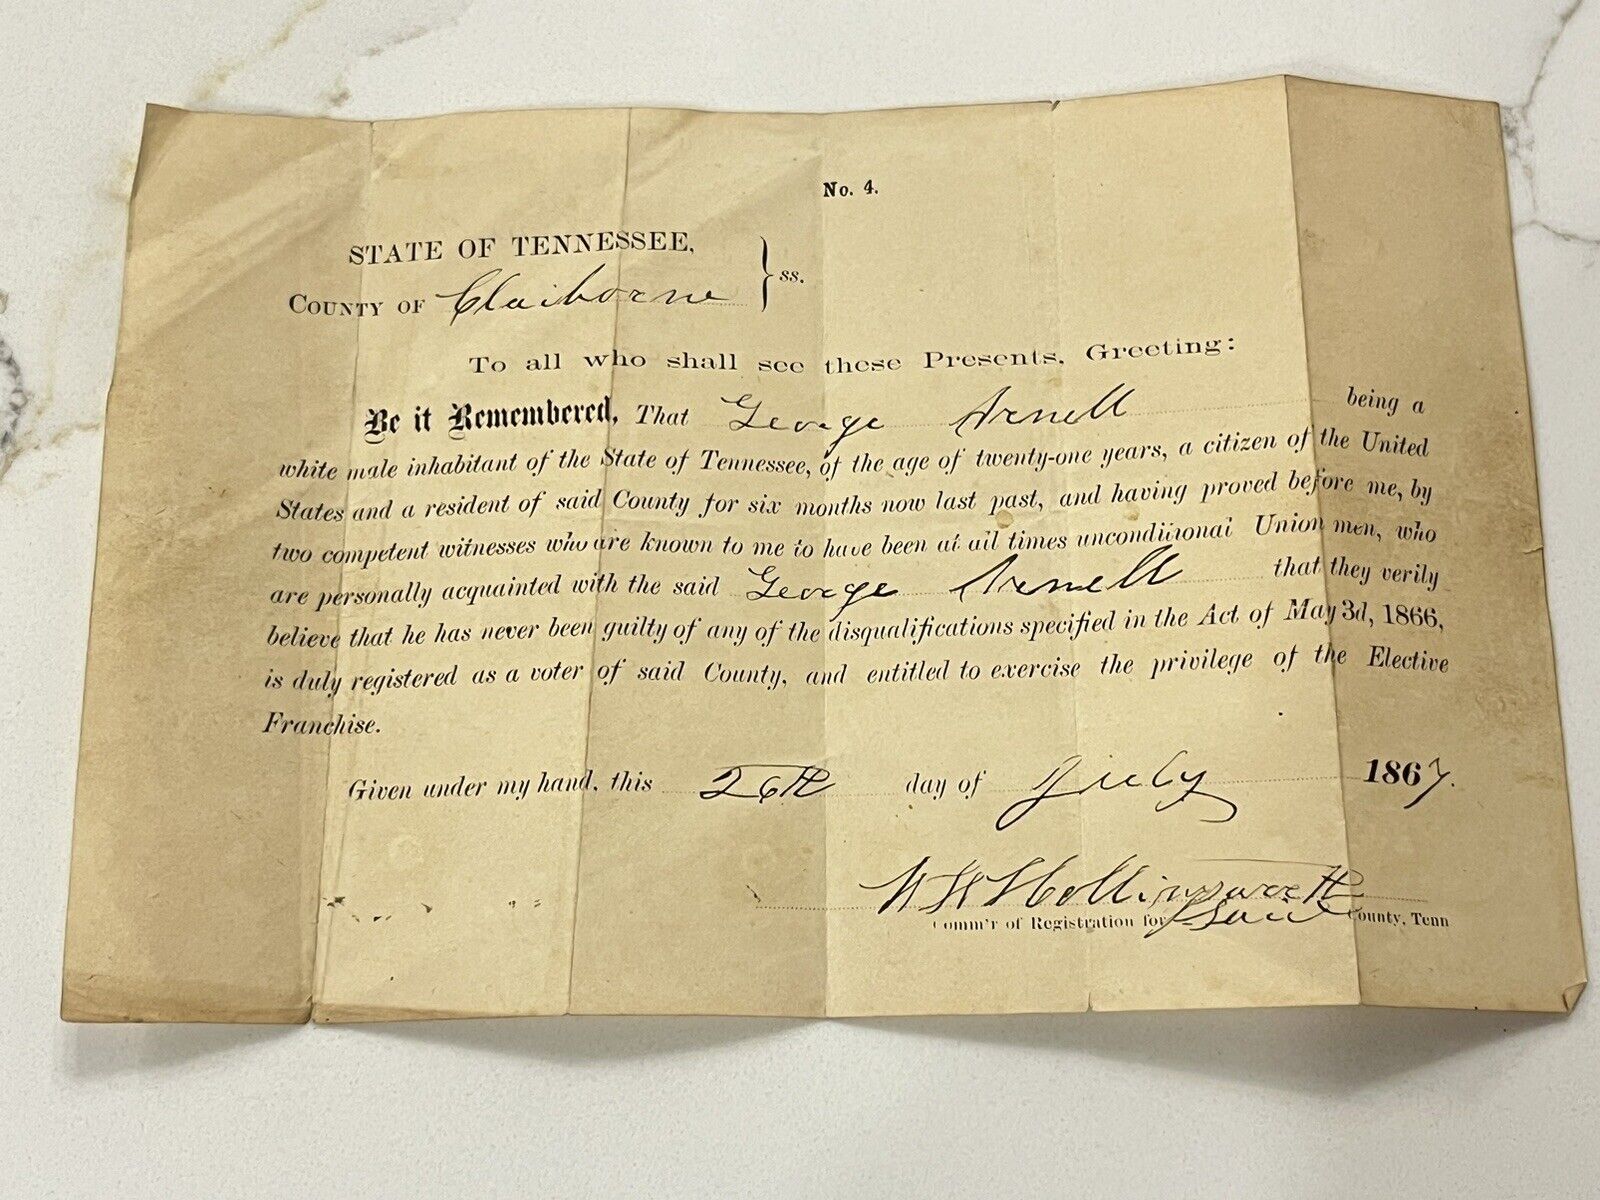 No. 4.
STATE OF TENNESSEE,
COUNTY OF Claiborne } ss.
To all who shall see these Presents, Greeting:
Be it Remembered, That George Arnell being a
white male inhabitant of the State of Tennessee, of the age of twenty-one years, a citizen of the United
States and a resident of said County for six months now last past, and having proved before me, by
two competent witnesses who are known to me to have been at all times unconditional Union men, who
are personally acquainted with the said George Arnell that they verily
believe that he has never been guilty of any of the disqualifications specified in the Act of May 3d, 1866,
is duly registered as a voter of said County, and entitled to exercise the privilege of the Elective
Franchise.
Given under my hand, this 26th day of July 1867.
Hollingsworth
Comm'r of Registration for said County, Tenn